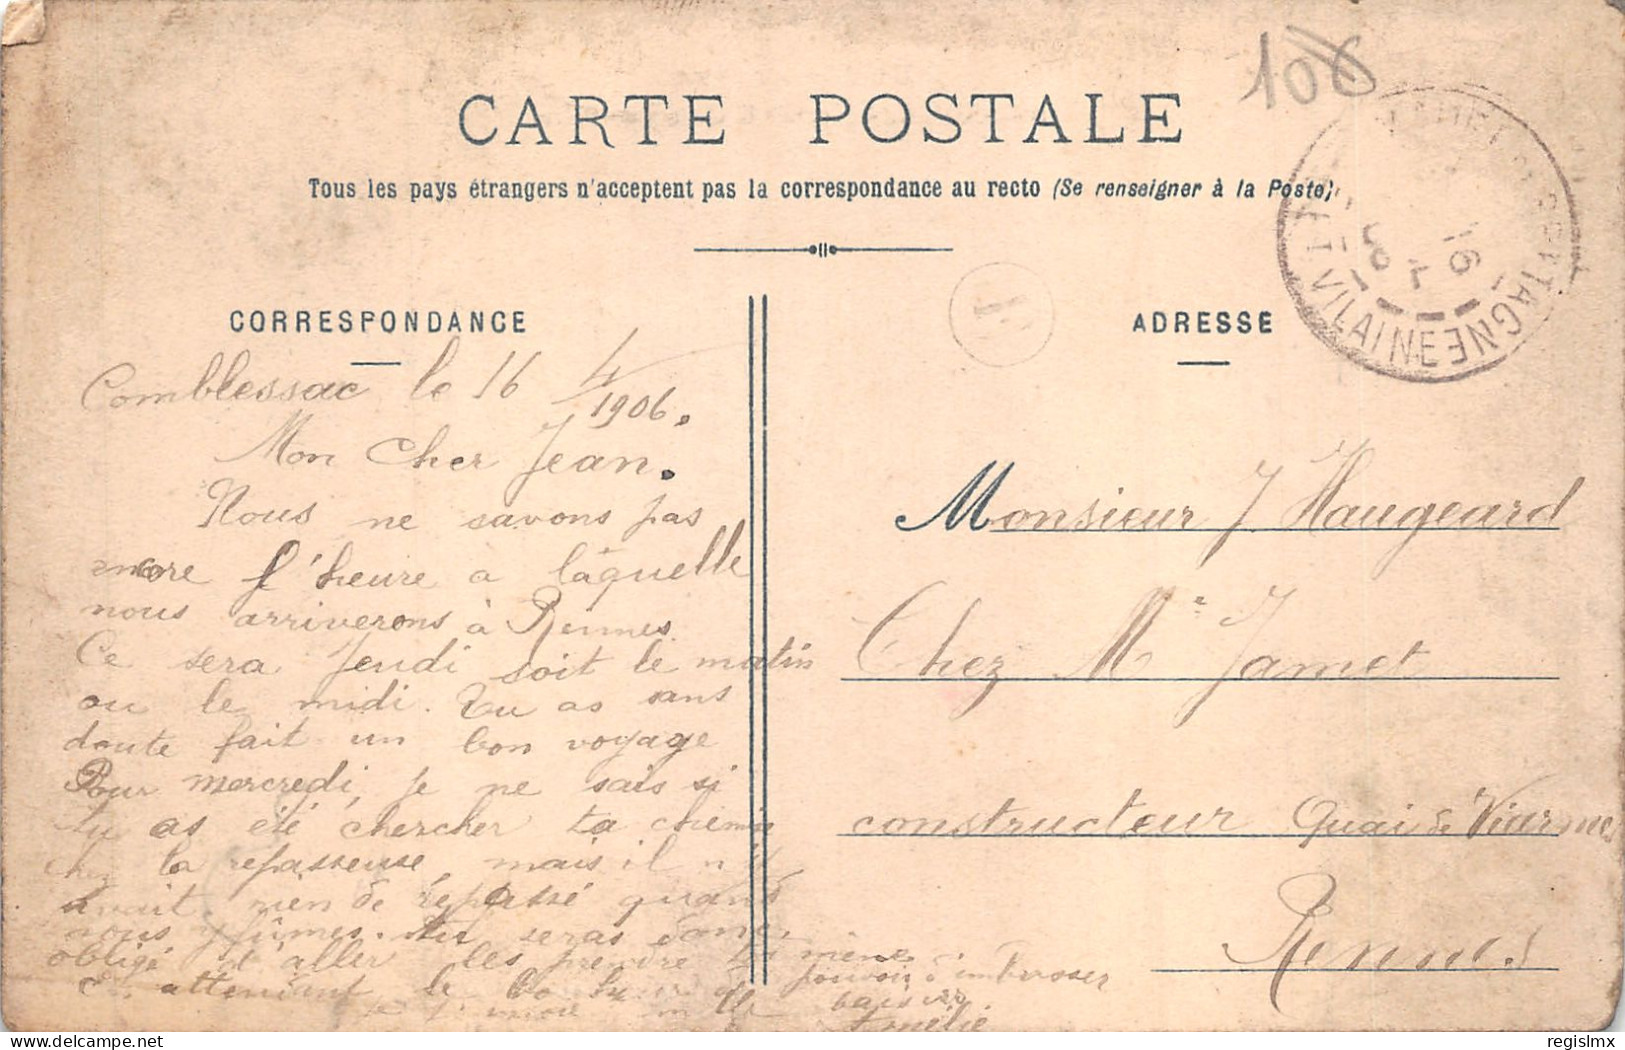 106
CARTE POSTALE
Tous les pays étrangers n'acceptent pas la correspondance au recto (Se renseigner à la Poste)
BRETAGNE
ET VILAINE
16
CORRESPONDANCE
ADRESSE
Comblessac le 16 4/1906.
Mon Cher Jean.
Nous ne savons pas
encore l'heure a làquelle
nous arriverons à Rennes.
Ce sera Jeudi soit le matin
ou le midi. Tu as sans
doute fait un bon voyage
Pour mercredi, je ne sais si
tu as été chercher ta chemise
chez la repasseuse, mais il n'y
avait rien de repassé quand
nous y fûmes. Tu seras donc
obligé d'aller les prendre toi même
En attendant le bonheur de pouvoir t'embrasser
mille baisers
Amélie
Monsieur J Haugeard
Chez Mr Jamet
constructeur Quai de Viarmes
Rennes
regislmx
delcampe.net